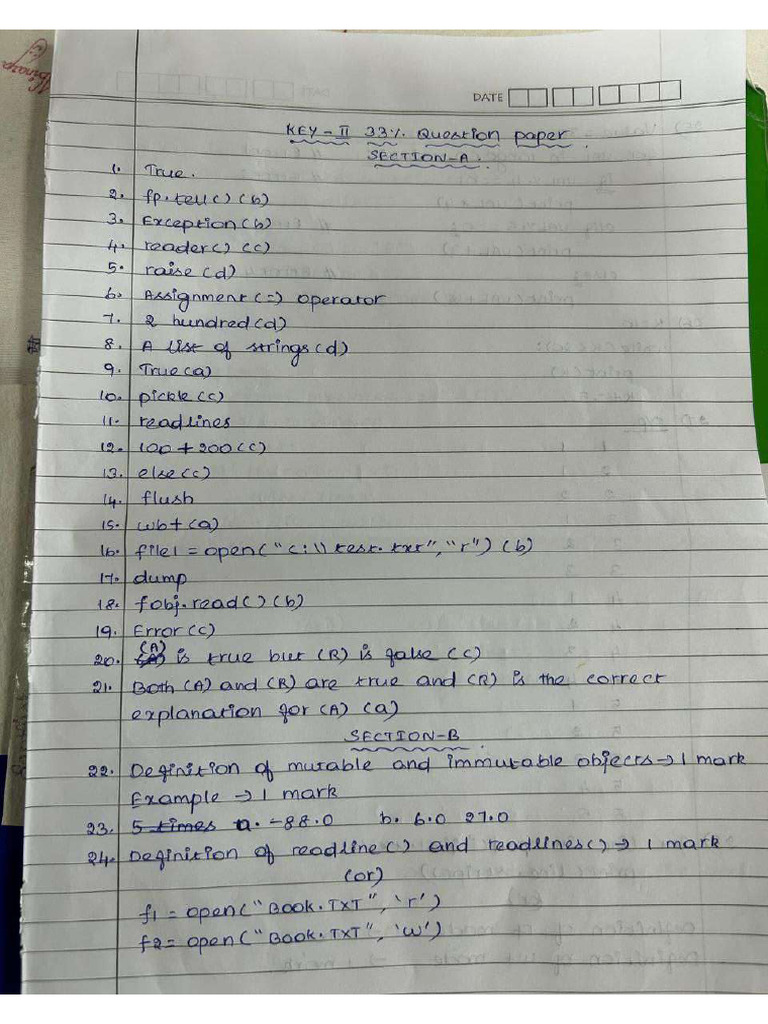 DATE
KEY-II 33% Question paper
SECTION-A.
1. True.
2. fp.tell() (b)
3. Exception(b)
4. reader() (c)
5. raise (d)
6. Assignment (=) operator
7. 2 hundred(d)
8. A list of strings(d)
9. True(a)
10. pickle(c)
11. readlines
12. 100+200(c)
13. else(c)
14. flush
15. wb+(a)
16. file1 = open("c:\\test.txt","r") (b)
17. dump
18. fobj.read() (b)
19. Error(c)
20. (A) is true but (R) is false (c)
21. Both (A) and (R) are true and (R) is the correct
explanation for (A) (a)
SECTION-B
22. Definition of mutable and immutable objects→1 mark
Example → 1 mark
23. 5 times a. -88.0 b. 6.0 27.0
24. Definition of readline() and readlines() → 1 mark
(or)
f1 = open("Book.TXT", 'r')
f2 = open("Book.TXT", 'w')